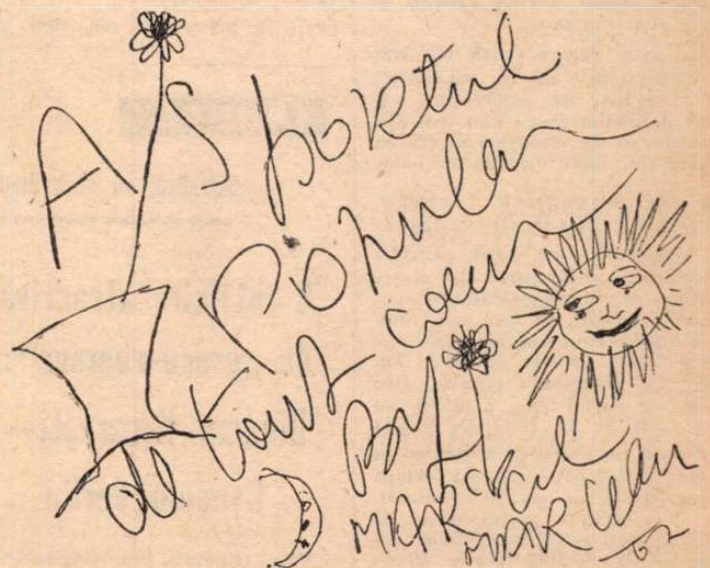 A Sportul
Popular
de tout coeur
By
MARCEL
MARCEAU
62